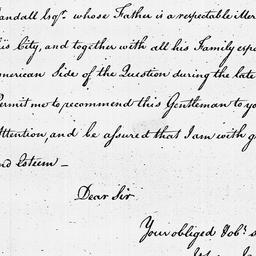 andall Esqr. whose Father is a respectable Mer
his City, and together with all his Family esp
merican Side of the Question during the late
Permit me to recommend this Gentleman to yo
Attention, and be assured that I am with g
nd Esteem —
Dear Sir
Your obliged Hob.l s